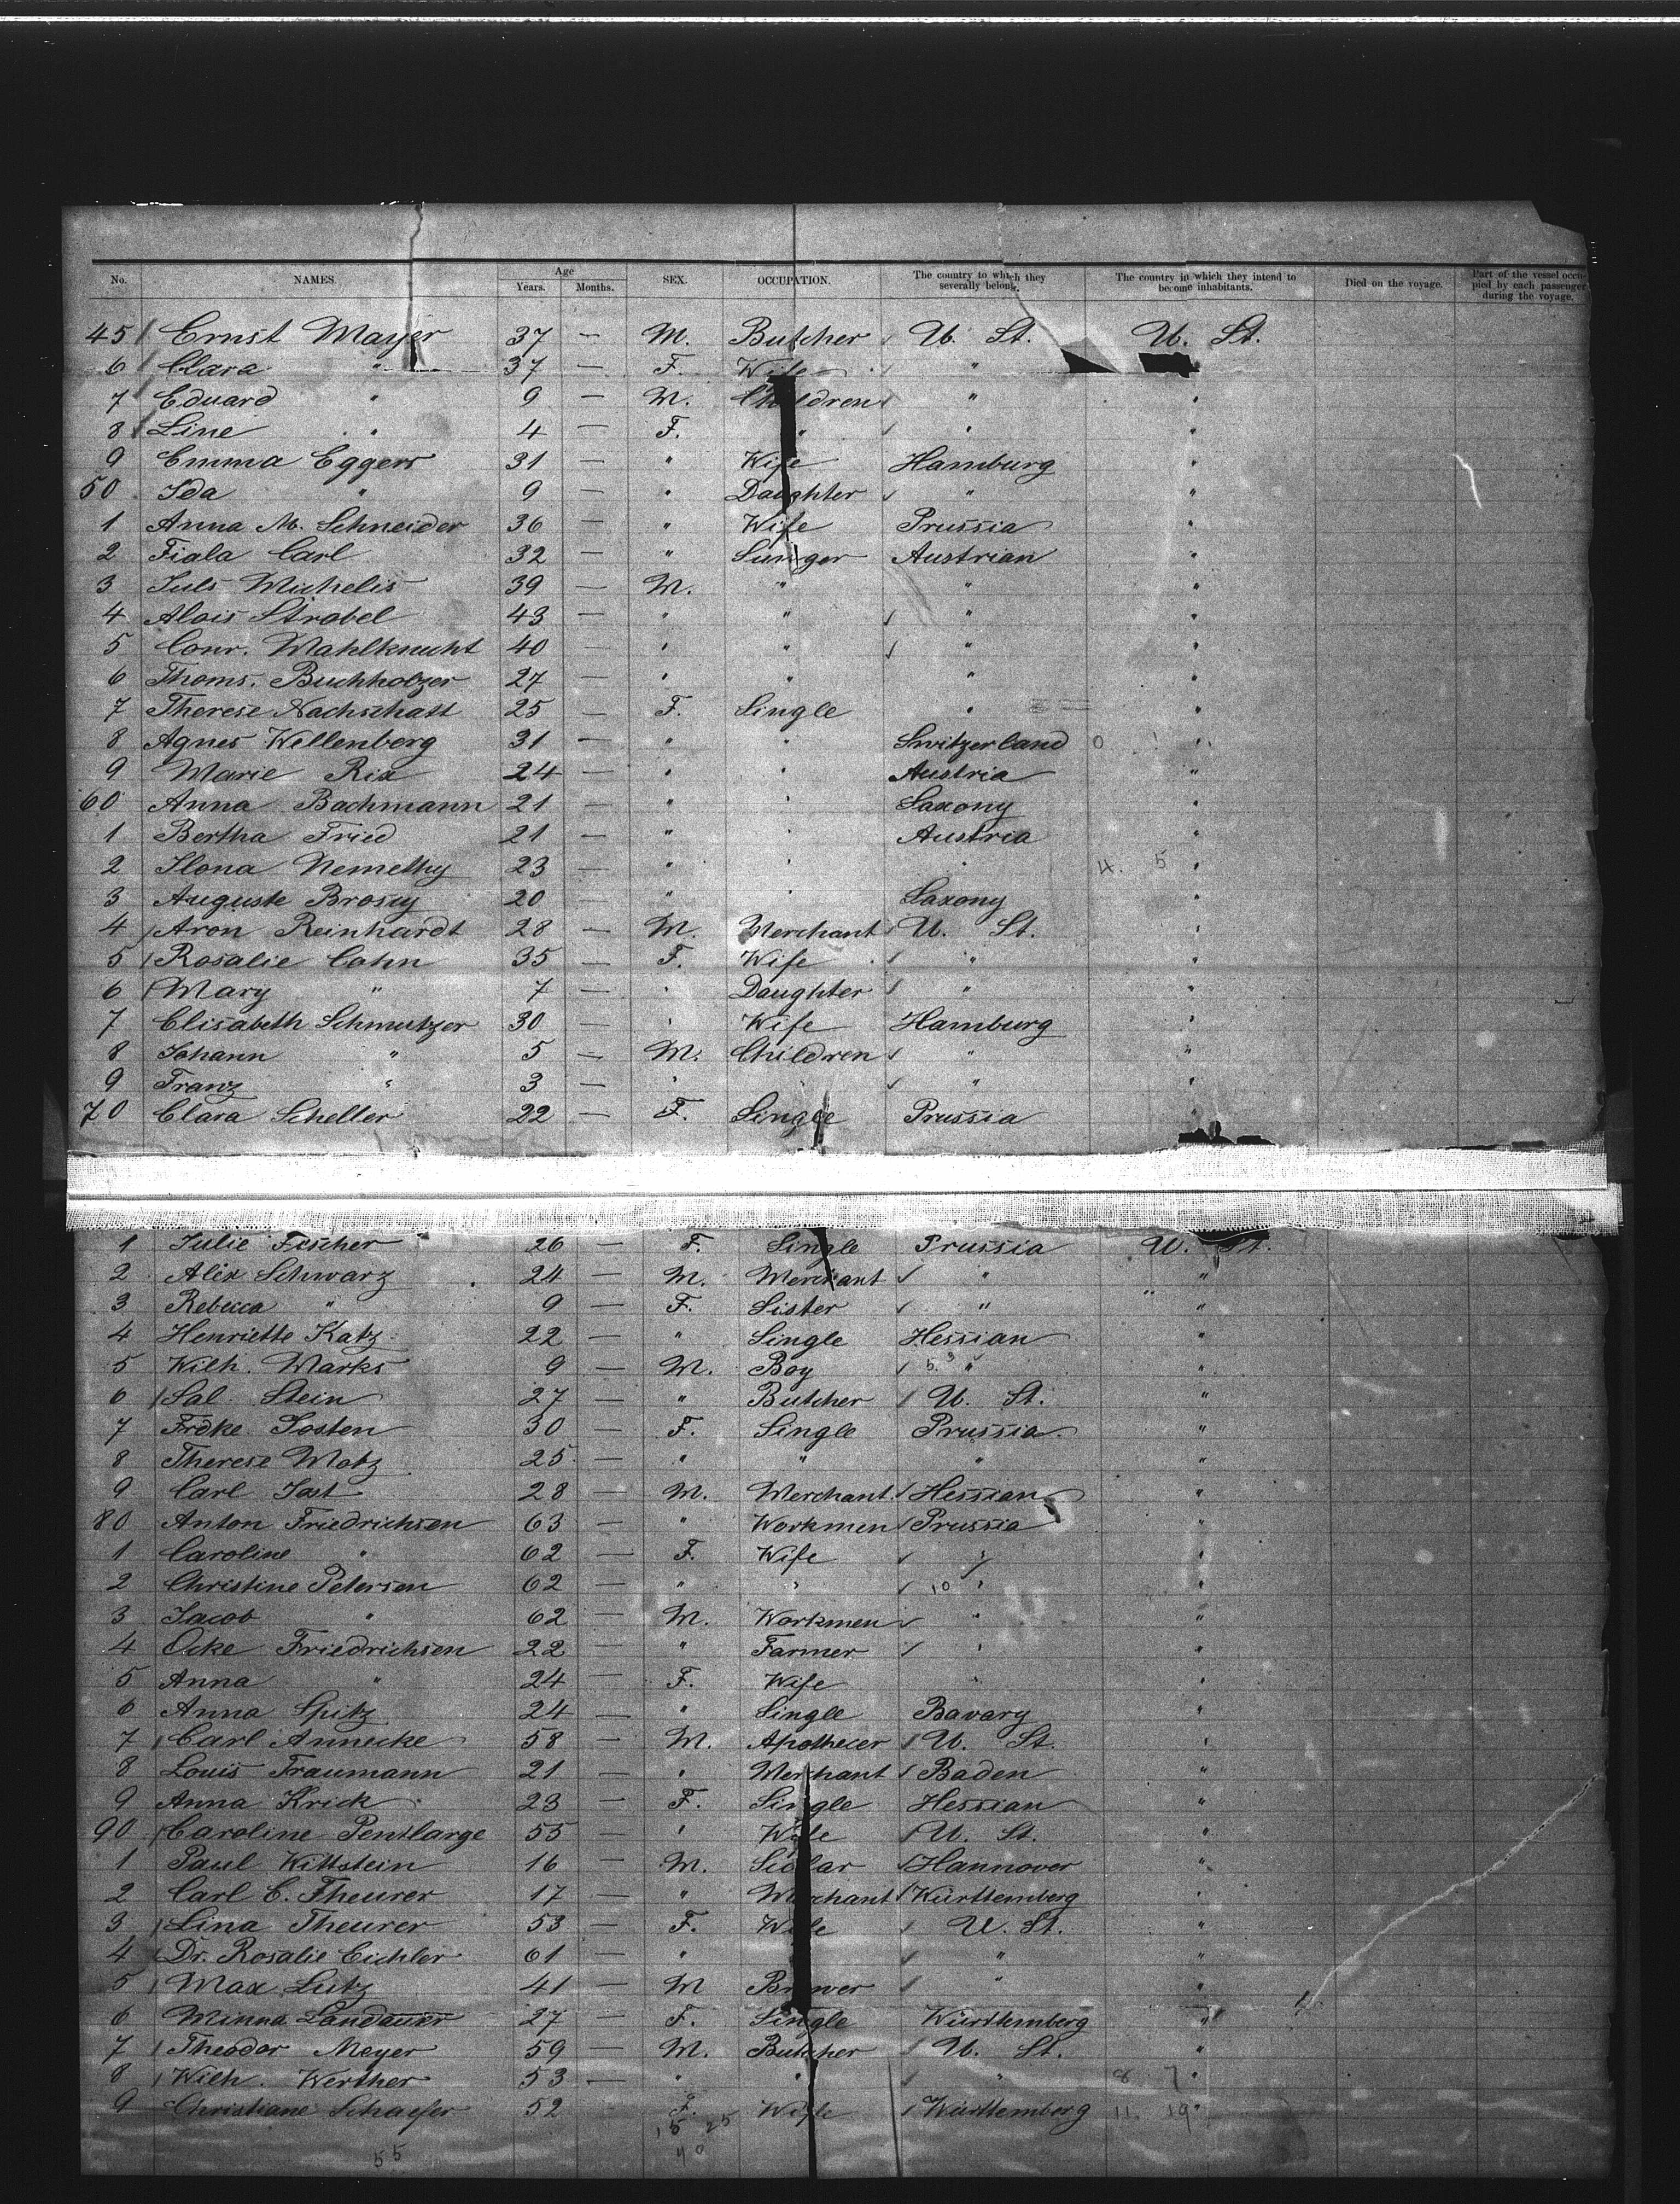 No. NAMES Age Years. Months. SEX. OCCUPATION. The country to which they severally belong. The country in which they intend to become inhabitants. Died on the voyage. Part of the vessel occupied by each passenger during the voyage.
45 Ernst Mayer 37 — M. Butcher U. St. U. St.
6 Clara " 37 — F. Wife "
7 Eduard " 9 — M. Children " "
8 Line " 4 — F. " " "
9 Emma Eggers 31 — " Wife Hamburg "
50 Ida " 9 — " Daughter " "
1 Anna M. Schneider 36 — " Wife Prussia "
2 Fiala Carl 32 — " Singer Austrian "
3 Juls Michelis 39 — M. " " "
4 Alois Strobel 43 — " " " "
5 Conr. Wahlknecht 40 — " " " "
6 Thoms. Buchholzer 27 — " " " "
7 Therese Nachschatt 25 — F. Single " "
8 Agnes Wellenberg 31 — " " Switzerland "
9 Marie Rix 24 — " " Austria "
60 Anna Bachmann 21 — " " Saxony "
1 Bertha Fried 21 — " " Austria "
2 Ilona Nemethy 23 — " " " 4. 5 "
3 Auguste Brosey 20 — " " Saxony "
4 Aron Reinhardt 28 — M. Merchant U. St. "
5 Rosalie Cohn 35 — F. Wife " "
6 Mary " 7 — " Daughter " "
7 Elisabeth Schmutzer 30 — " Wife Hamburg "
8 Johann " 5 — M. Children " "
9 Franz " 3 — " " " "
70 Clara Scheller 22 — F. Single Prussia "
1 Julie Fischer 26 — F. Single Prussia U. St.
2 Alex Schwarz 24 — M. Merchant " "
3 Rebecca " 9 — F. Sister " "
4 Henriette Katz 22 — " Single Hessian "
5 Wilh. Marks 9 — M. Boy " "
6 Sal. Stein 27 — " Butcher U. St. "
7 Frdke Josten 30 — F. Single Prussia "
8 Therese Motz 25 — " " " "
9 Carl Jost 28 — M. Merchant Hessian "
80 Anton Friedrichsen 63 — " Workmen Prussia "
1 Caroline " 62 — F. Wife " "
2 Christine Petersen 62 — " " 10 " "
3 Jacob " 62 — M. Workmen " "
4 Ocke Friedrichsen 22 — " Farmer " "
5 Anna " 24 — F. Wife " "
6 Anna Spitz 24 — " Single Bavary "
7 Carl Annecke 58 — M. Apothecer U. St. "
8 Louis Traumann 21 — " Merchant Baden "
9 Anna Krick 23 — F. Single Hessian "
90 Caroline Pentlarge 55 — " Wife U. St. "
1 Paul Wittstein 16 — M. Hannover "
2 Carl C. Theurer 17 — " Merchant Württemberg "
3 Lina Theurer 53 — F. Wife U. St. "
4 Dr. Rosalie Eichler 61 — " " "
5 Max Lutz 41 — M Brewer " "
6 Minna Landauer 27 — F. Single Württemberg "
7 Theodor Meyer 59 — M. Butcher U. St. "
8 Wilh. Werther 53 — " " " 8 7 "
9 Christiane Schaefer 52 F. Wife Württemberg 11. 19 "
15 25
55 40